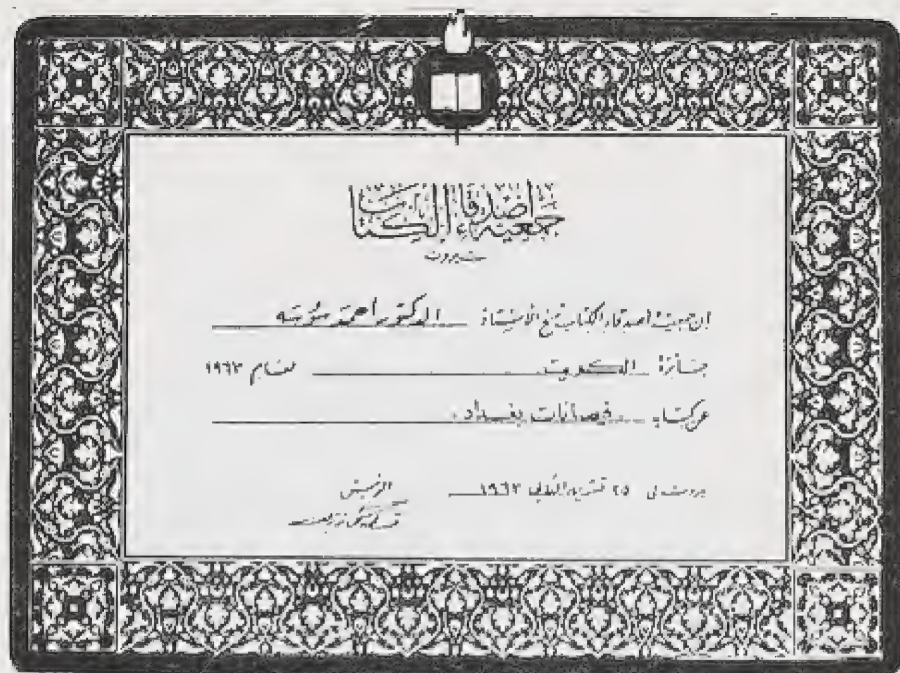 جمعية أصدقاء الكتاب
بيروت
ان جمعية أصدقاء الكتاب تمنح الأستاذ الدكتور احمد سوسه
جائزة الكويت لعام ١٩٦٣
عن كتاب فيضانات بغداد
بيروت في ٢٥ تشرين الثاني ١٩٦٣
الرئيس